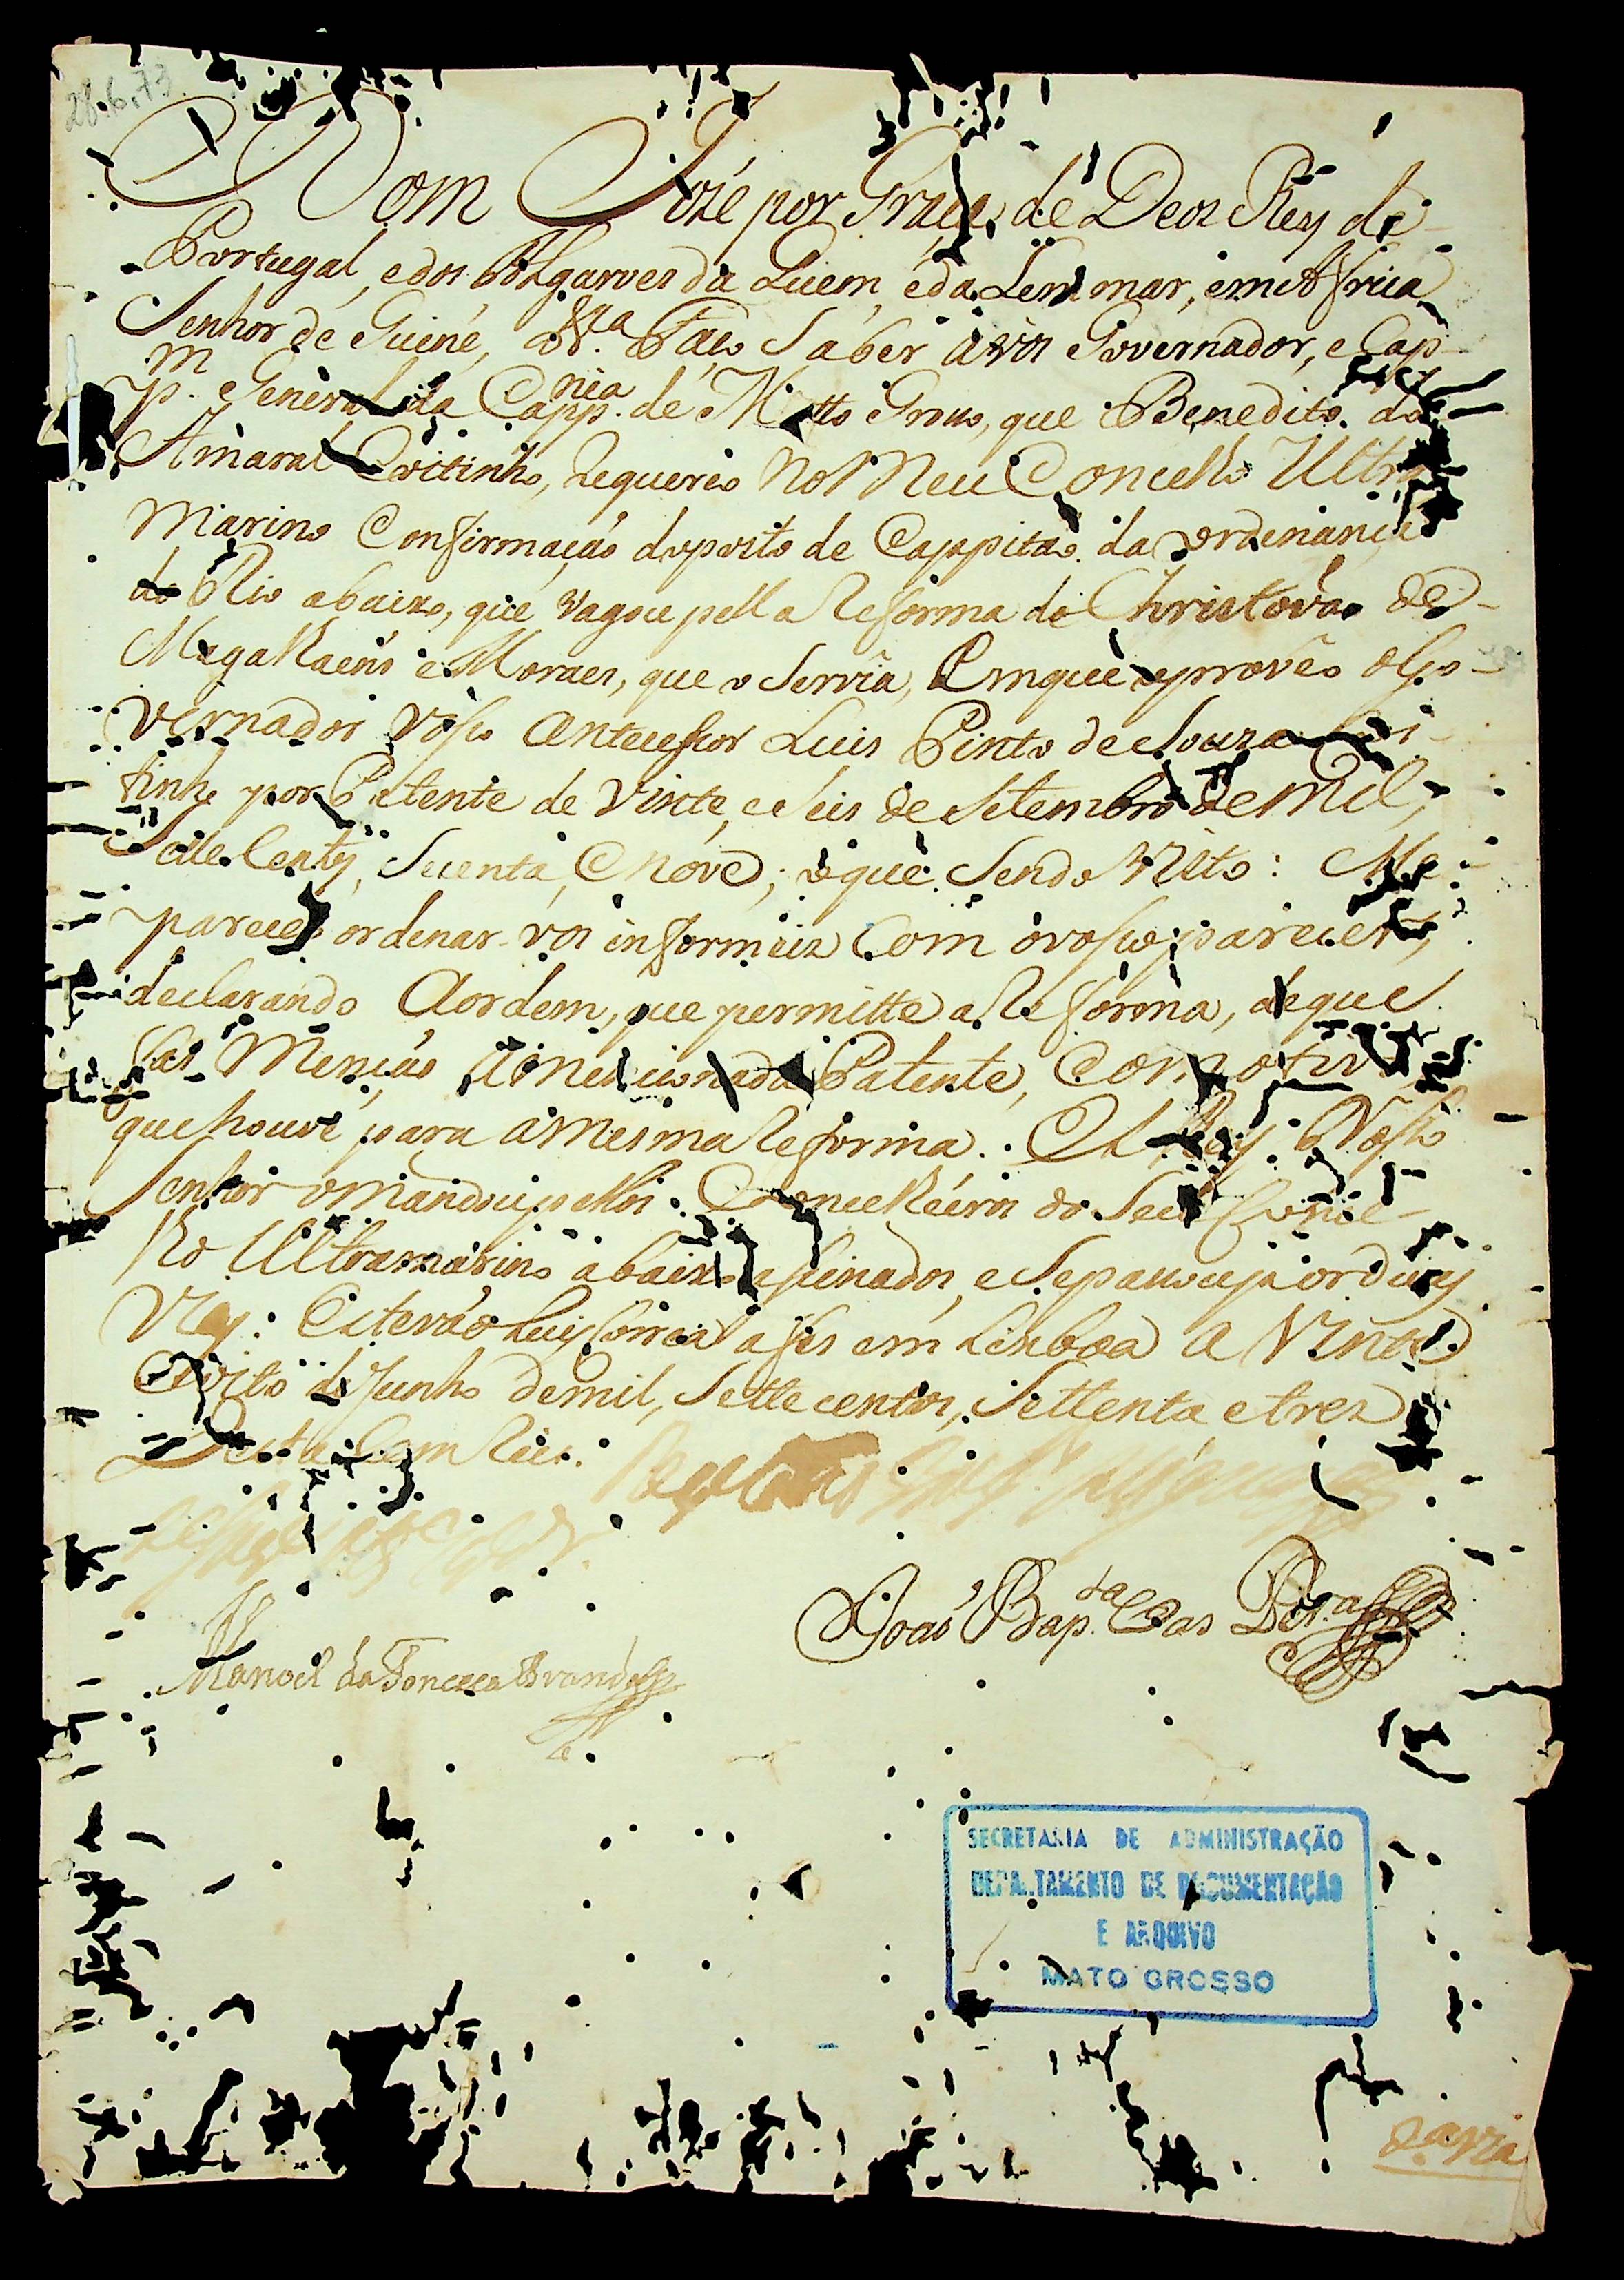 28.6.73
Dom Jozé por Graça de Deos Rey de
Portugal, e dos Algarves da quem, e da Lem mar, em Africa
Senhor de Guiné, &.ra Faço Saber a vos Governador, e Cap
p.m General da Capp.nia de Matto Groço, que Benedito do
Amaral Coitinho, requereo no Meu Concelho Ultra
Marino Confirmação do posto de Cappitão da ordenança
do Rio abaixo, que vagou pella reforma de Christovão de
Magalhaens e Moraes, que o Servia, Em que o proveo o Go-
vernador vosso Antecessor Luis Pinto de Souza Coi
tinho por Patente de vinte, e Seis de Setembro de Mil,
Sette Centos, Secenta, e Nove; o que Sendo visto: Me
pareceo ordenar-vos informeis Com o vosso parecer,
declarando A ordem, que permitte a Reforma, de que
fas Menção a Mencionada Patente, e o motivo
que houve para a mesma reforma. El Rey Nosso
Senhor o mandou pellos Concelheiros do Seu Conce
lho Ultramarino abaixo asinados, e Se passou por duas
Vias: Estevão Luis Correa a fes em Lisboa a Vinte
e oito de Junho de mil, Sette centos, Settenta, e tres
Desta Cem Reis.
João Bap.ta Vas Per.a
Manoel da Fonceca Brandão
SECRETARIA DE ADMINISTRAÇÃO
DEPARTAMENTO DE DOCUMENTAÇÃO
E ARQUIVO
MATO GROSSO
2.a via